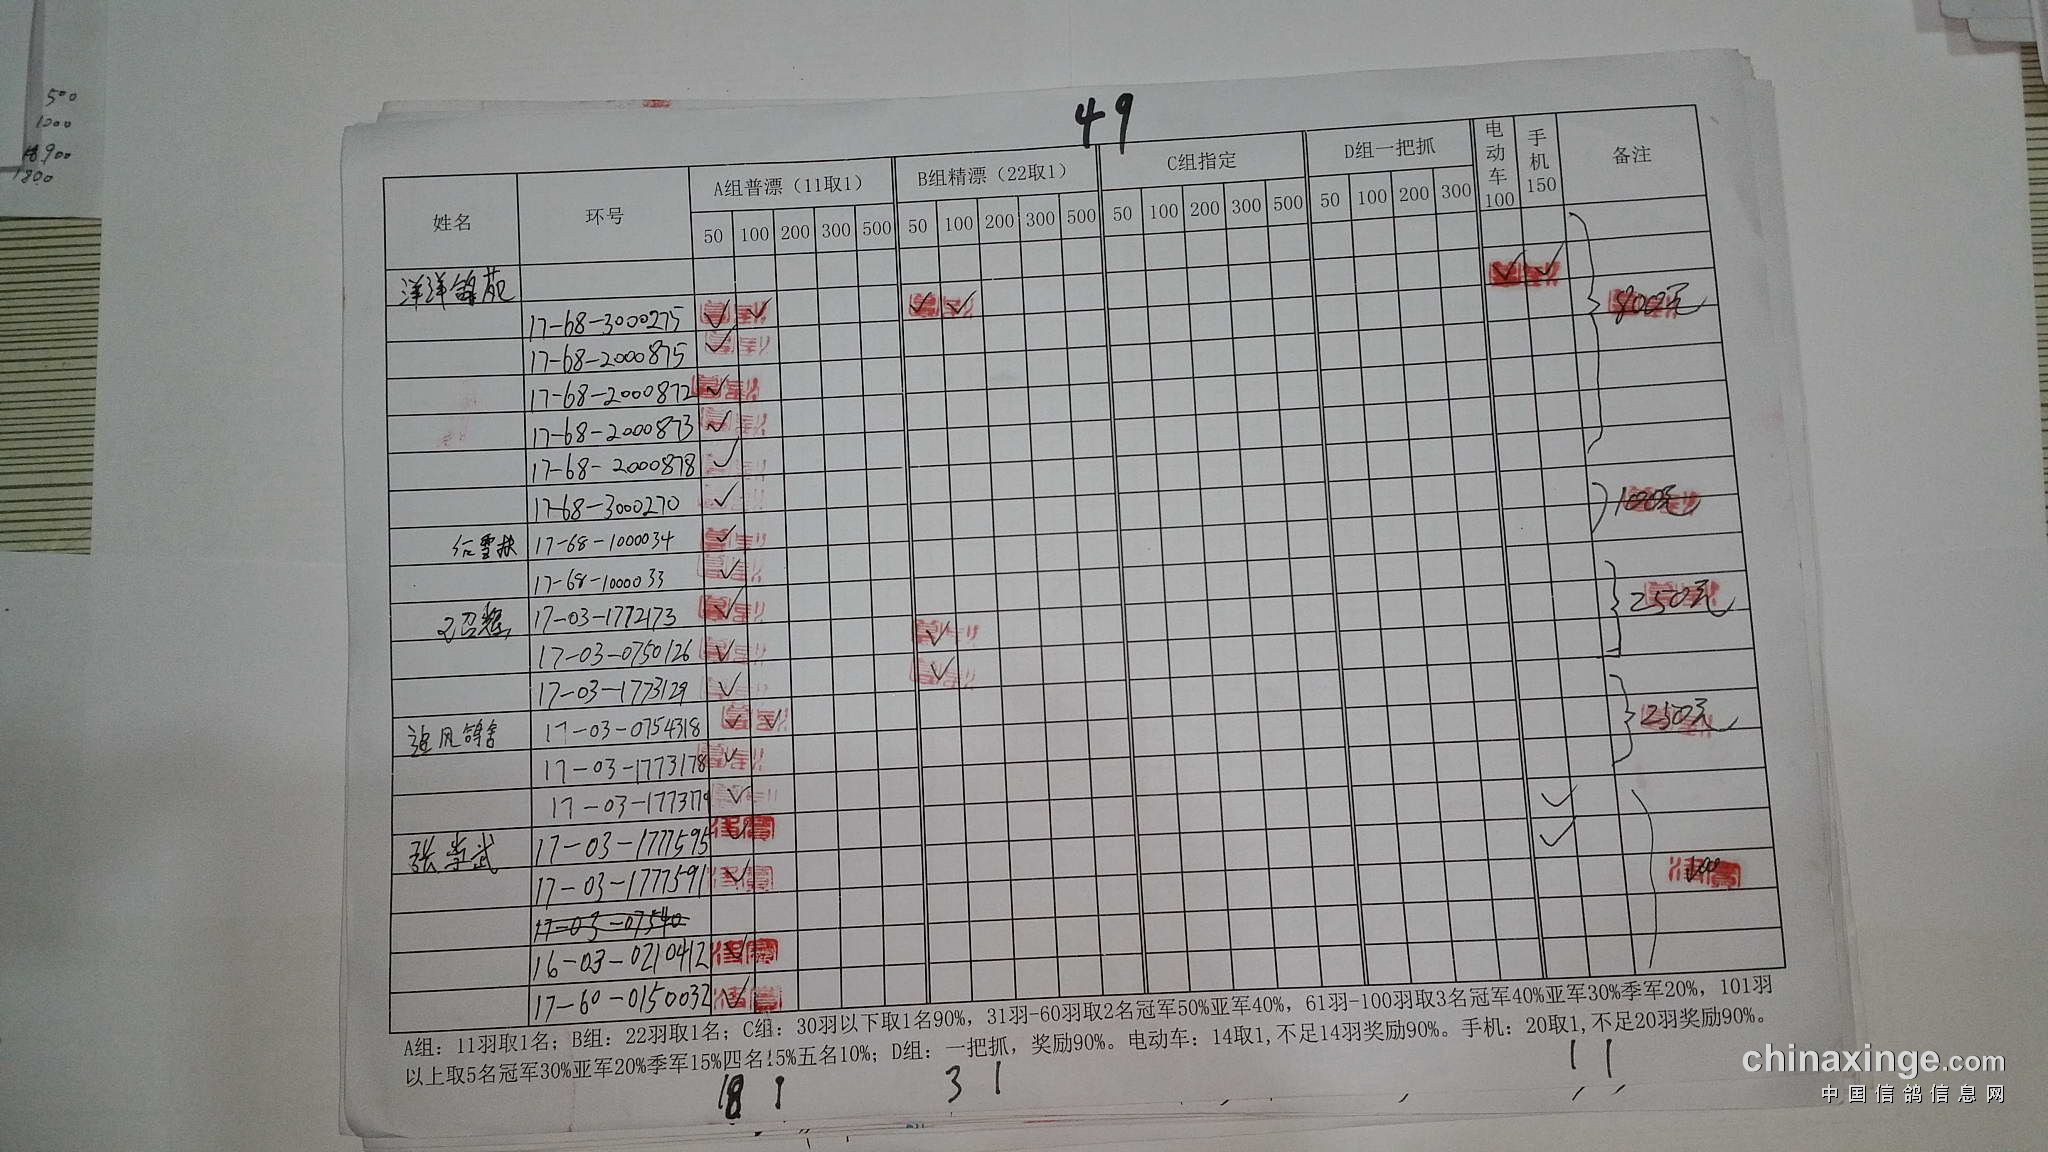 500
1200
18900
1800
49
姓名 环号 A组普漂（11取1） B组精漂（22取1） C组指定 D组一把抓 电动车100 手机150 备注
50 100 200 300 500 50 100 200 300 500 50 100 200 300 500 50 100 200 300
洋洋鸽苑
17-68-3000275 ✓ ✓ ✓ ✓ ✓ ✓ 800元
17-68-2000875 ✓
17-68-2000872 ✓
17-68-2000873 ✓
17-68-2000878 ✓
17-68-3000270 ✓
17-68-1000034 ✓ 100元
17-68-1000033 ✓
17-03-1772173 ✓ 250元
17-03-0750126 ✓ ✓
17-03-1773129 ✓ ✓
追风鸽舍 17-03-0754318 ✓ ✓ 250元
17-03-1773178 ✓
17-03-177379 ✓
张学武 17-03-1777595 ✓ ✓
17-03-1777591 ✓ ✓
17-03-07540
16-03-0210412 ✓
17-60-0150032 ✓
A组：11羽取1名；B组：22羽取1名；C组：30羽以下取1名90%，31羽-60羽取2名冠军50%亚军40%，61羽-100羽取3名冠军40%亚军30%季军20%，101羽
以上取5名冠军30%亚军20%季军15%四名15%五名10%；D组：一把抓，奖励90%。电动车：14取1,不足14羽奖励90%。手机：20取1,不足20羽奖励90%。
18 1 3 1 1 1
chinaxinge.com
中国信鸽信息网